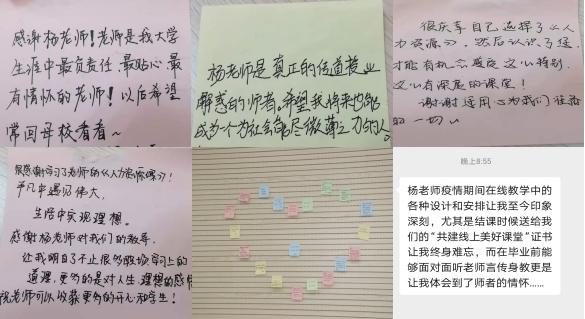 感谢杨老师！老师是我大学
生涯中最负责任、最贴心、最
有情怀的老师！以后希望
常回母校看看~
杨老师是真正的传道授业
解惑的师者，希望我将来也能
成为一个为社会能尽微薄之力的人。
很庆幸自己选择了《人
力资源》，然后认识了您，
才能有机会感受这么特别、
这么有深度的课堂！
谢谢 用心为我们
的一切
很感谢 了老师的《人力资源 》！
平凡中遇见伟大，
生活中实现理想。
感谢杨老师对我们的教导，
让我明白了不止很多 学习上的
道理，更多的是对人生、理想的感悟
祝老师可以收获更多的开心和学生！
晚上8:55
杨老师疫情期间在线教学中的
各种设计和安排让我至今印象
深刻，尤其是结课时候送给我
们的“共建线上美好课堂”证书
让我终身难忘，而在毕业前能
够面对面听老师言传身教更是
让我体会到了师者的情怀……